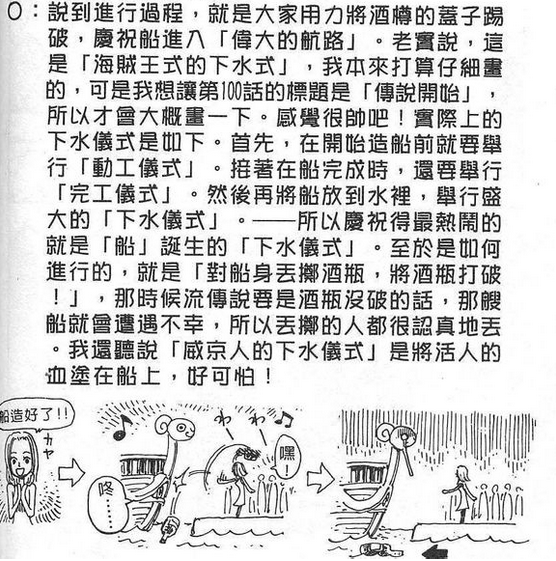 O：說到進行過程，就是大家用力將酒樽的蓋子踢
破，慶祝船進入「偉大的航路」。老實說，這
是「海賊王式的下水式」，我本來打算仔細畫
的，可是我想讓第100話的標題是「傳說開始」，
所以才會大概畫一下。感覺很帥吧！實際上的
下水儀式是如下。首先，在開始造船前就要舉
行「動工儀式」。接著在船完成時，還要舉行
「完工儀式」。然後再將船放到水裡，舉行盛
大的「下水儀式」。──所以慶祝得最熱鬧的
就是「船」誕生的「下水儀式」。至於是如何
進行的，就是「對船身丟擲酒瓶，將酒瓶打破
！」，那時候流傳說要是酒瓶沒破的話，那艘
船就會遭遇不幸，所以丟擲的人都很認真地丟
。我還聽說「威京人的下水儀式」是將活人的
血塗在船上，好可怕！
船造好了!!
カヤ
咚……
わ
わ
嘿